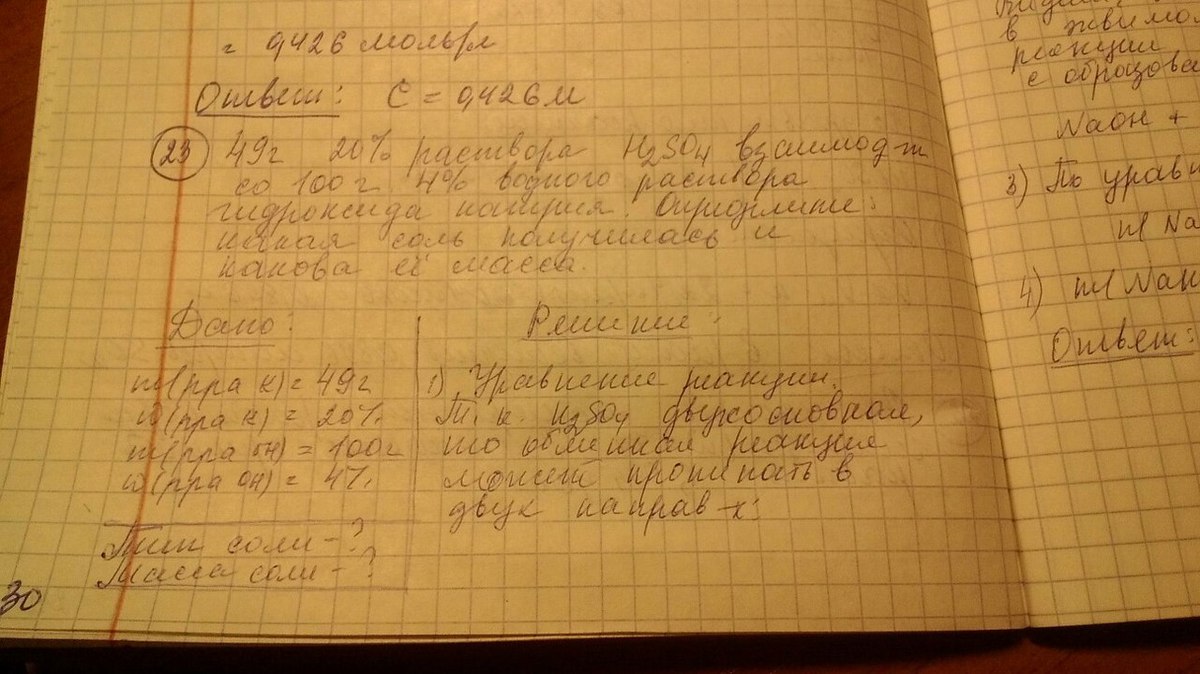 = 0,426 моль/л
Ответ: С = 0,426 М
23 49г 20% раствора H2SO4 взаимод-т
со 100г 4% водного раствора
гидроксида натрия. Определите:
какая соль получилась и
какова её масса.
Дано:
m(р-ра к) = 49г
w(р-ра к) = 20%
m(р-ра он) = 100г
w(р-ра он) = 4%
Тип соли - ?
Масса соли - ?
Решение:
1) Уравнение реакции.
Т. к. H2SO4 двухосновная,
то обменная реакция
может протекать в
двух направ-х:
30
в
реакции
с образова
NaOH +
3) По уравн
m(Na
4) m(NaH
Ответ: